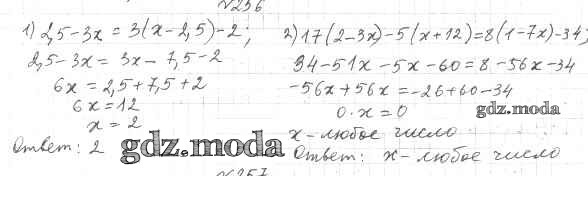 №256
1) 2,5-3x = 3(x-2,5)-2;
2,5-3x = 3x-7,5-2
6x = 2,5+7,5+2
6x = 12
x = 2
Ответ: 2
2) 17(2-3x)-5(x+12)=8(1-7x)-34;
34-51x-5x-60=8-56x-34
-56x+56x=-26+60-34
0·x=0
x-любое число
Ответ: x-любое число
gdz.moda
gdz.moda
№257